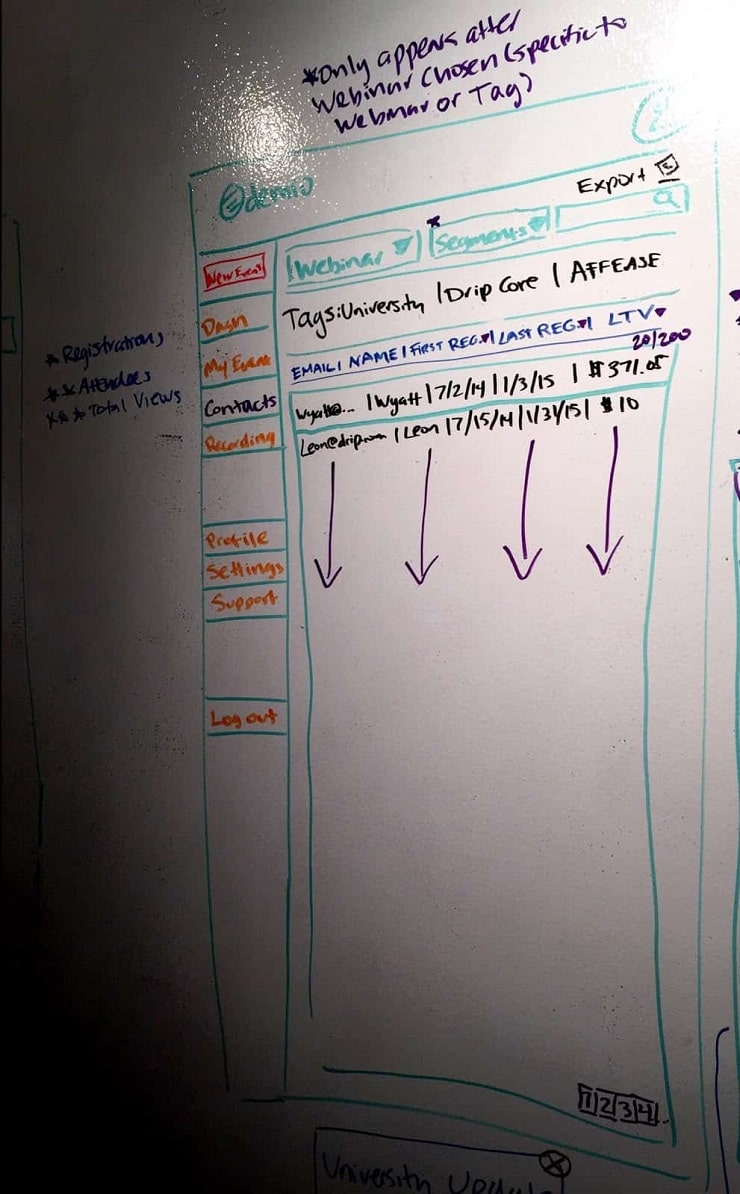 *Only appears after
Webinar chosen (specific to
Webinar or Tag)
demio
Export
New Event
Webinar
Segments
Tags: University | Drip Core | AFFEASE
Dash
My Event
Contacts
Recording
* Registrations
** Attendees
*** Total Views
EMAIL | NAME | FIRST REG. | LAST REG. | LTV
20/200
Wyatt@... | Wyatt | 7/2/14 | 1/3/15 | $371.05
Leon@drip.com | Leon | 7/15/14 | 1/31/15 | $10
Profile
Settings
Support
Log out
1 2 3 4 ..
University